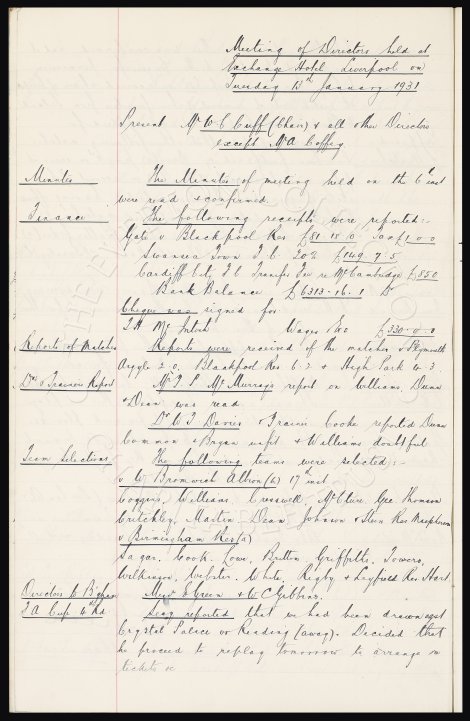 Meeting of Directors held at
Exchange Hotel Liverpool on
Tuesday 13th January 1931
Present Mr W C Cuff (Chair) & all other Directors
except Mr A Coffey
Minutes The Minutes of meeting held on the 6th inst
were read & confirmed.
Finance The following receipts were reported:-
Gate v Blackpool Res £81.18.0 Tax £1.0.0
Swansea Town F C 20% £149.7.5
Cardiff City F C Transfer Fee re McCambridge £850
Bank Balance £6313.16.1
Cheque was signed for
T H McIntosh Wages Eve £330.0.0
Reports of Matches Reports were received of the matches v Plymouth
Argyle 2.0, Blackpool Res & High Park 4.3
Drs & Trainers Report Mr T P McMurray's report on Williams, Dunn
& Dean was read
Dr W J Davies & Trainer Cooke reported Dunn
Common & Bryan unfit & Williams doubtful
Team Selections The following teams were selected:-
v W Bromwich Albion (a) 17th inst
Coggins, Williams, Cresswell, McClure, Gee Thomson
Critchley, Martin, Dean, Johnson & Stein Res
v Birmingham Res (a)
Sagar, Cook, Lowe, Britton, Griffiths, Towers,
Wilkinson, Webster, White, Rigby & Leyfield Res Hart.
Directors to B'gham Green & W C Gibbins.
F A Cup 4th Rd Secy reported that we had been drawn agst
Crystal Palace or Reading (away). Decided that
he proceed to replay tomorrow to arrange re
tickets &c